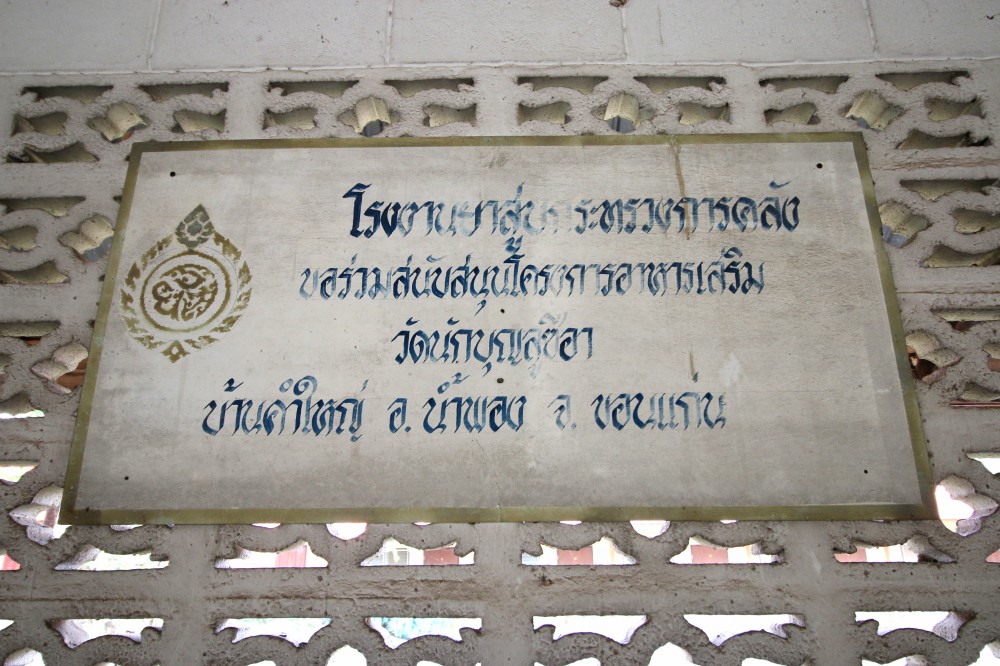 โรงงานยาสูบกระทรวงการคลัง
ขอร่วมสนับสนุนโครงการอาหารเสริม
วัดนักบุญลูซีอา
บ้านคำใหญ่ อ.น้ำพอง จ.ขอนแก่น